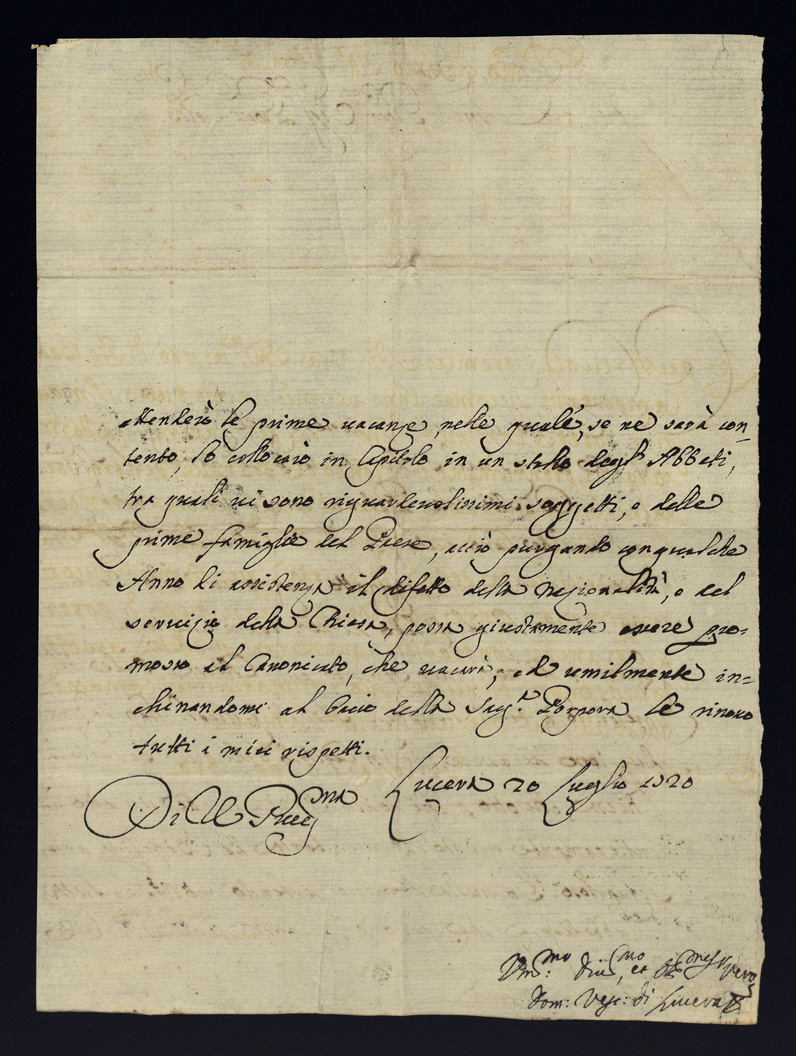 attenderò le prime vacanze, nelle quali, se ne sarà con=
tento, lo collocarò in Capitolo in un stallo degl' Abbati,
tra quali vi sono riguardevolissimi soggetti, e delle
prime famiglie del Paese, acciò purgando con qualche
Anno di assistenza il difetto della nazionalità, e del
servizio della Chiesa, possa giustamente essere pro=
mosso al Canonicato, che vacarà; ed umilmente in=
chinandomi al bacio della Sag.ᵃ Porpora le rinovo
tutti i miei rispetti.
Di V Em̃za Lucera 20 Luglio 1720
Um.ᵐᵒ Div.ᵐᵒ et Serv vero
Dom: Vesc: di Lucera